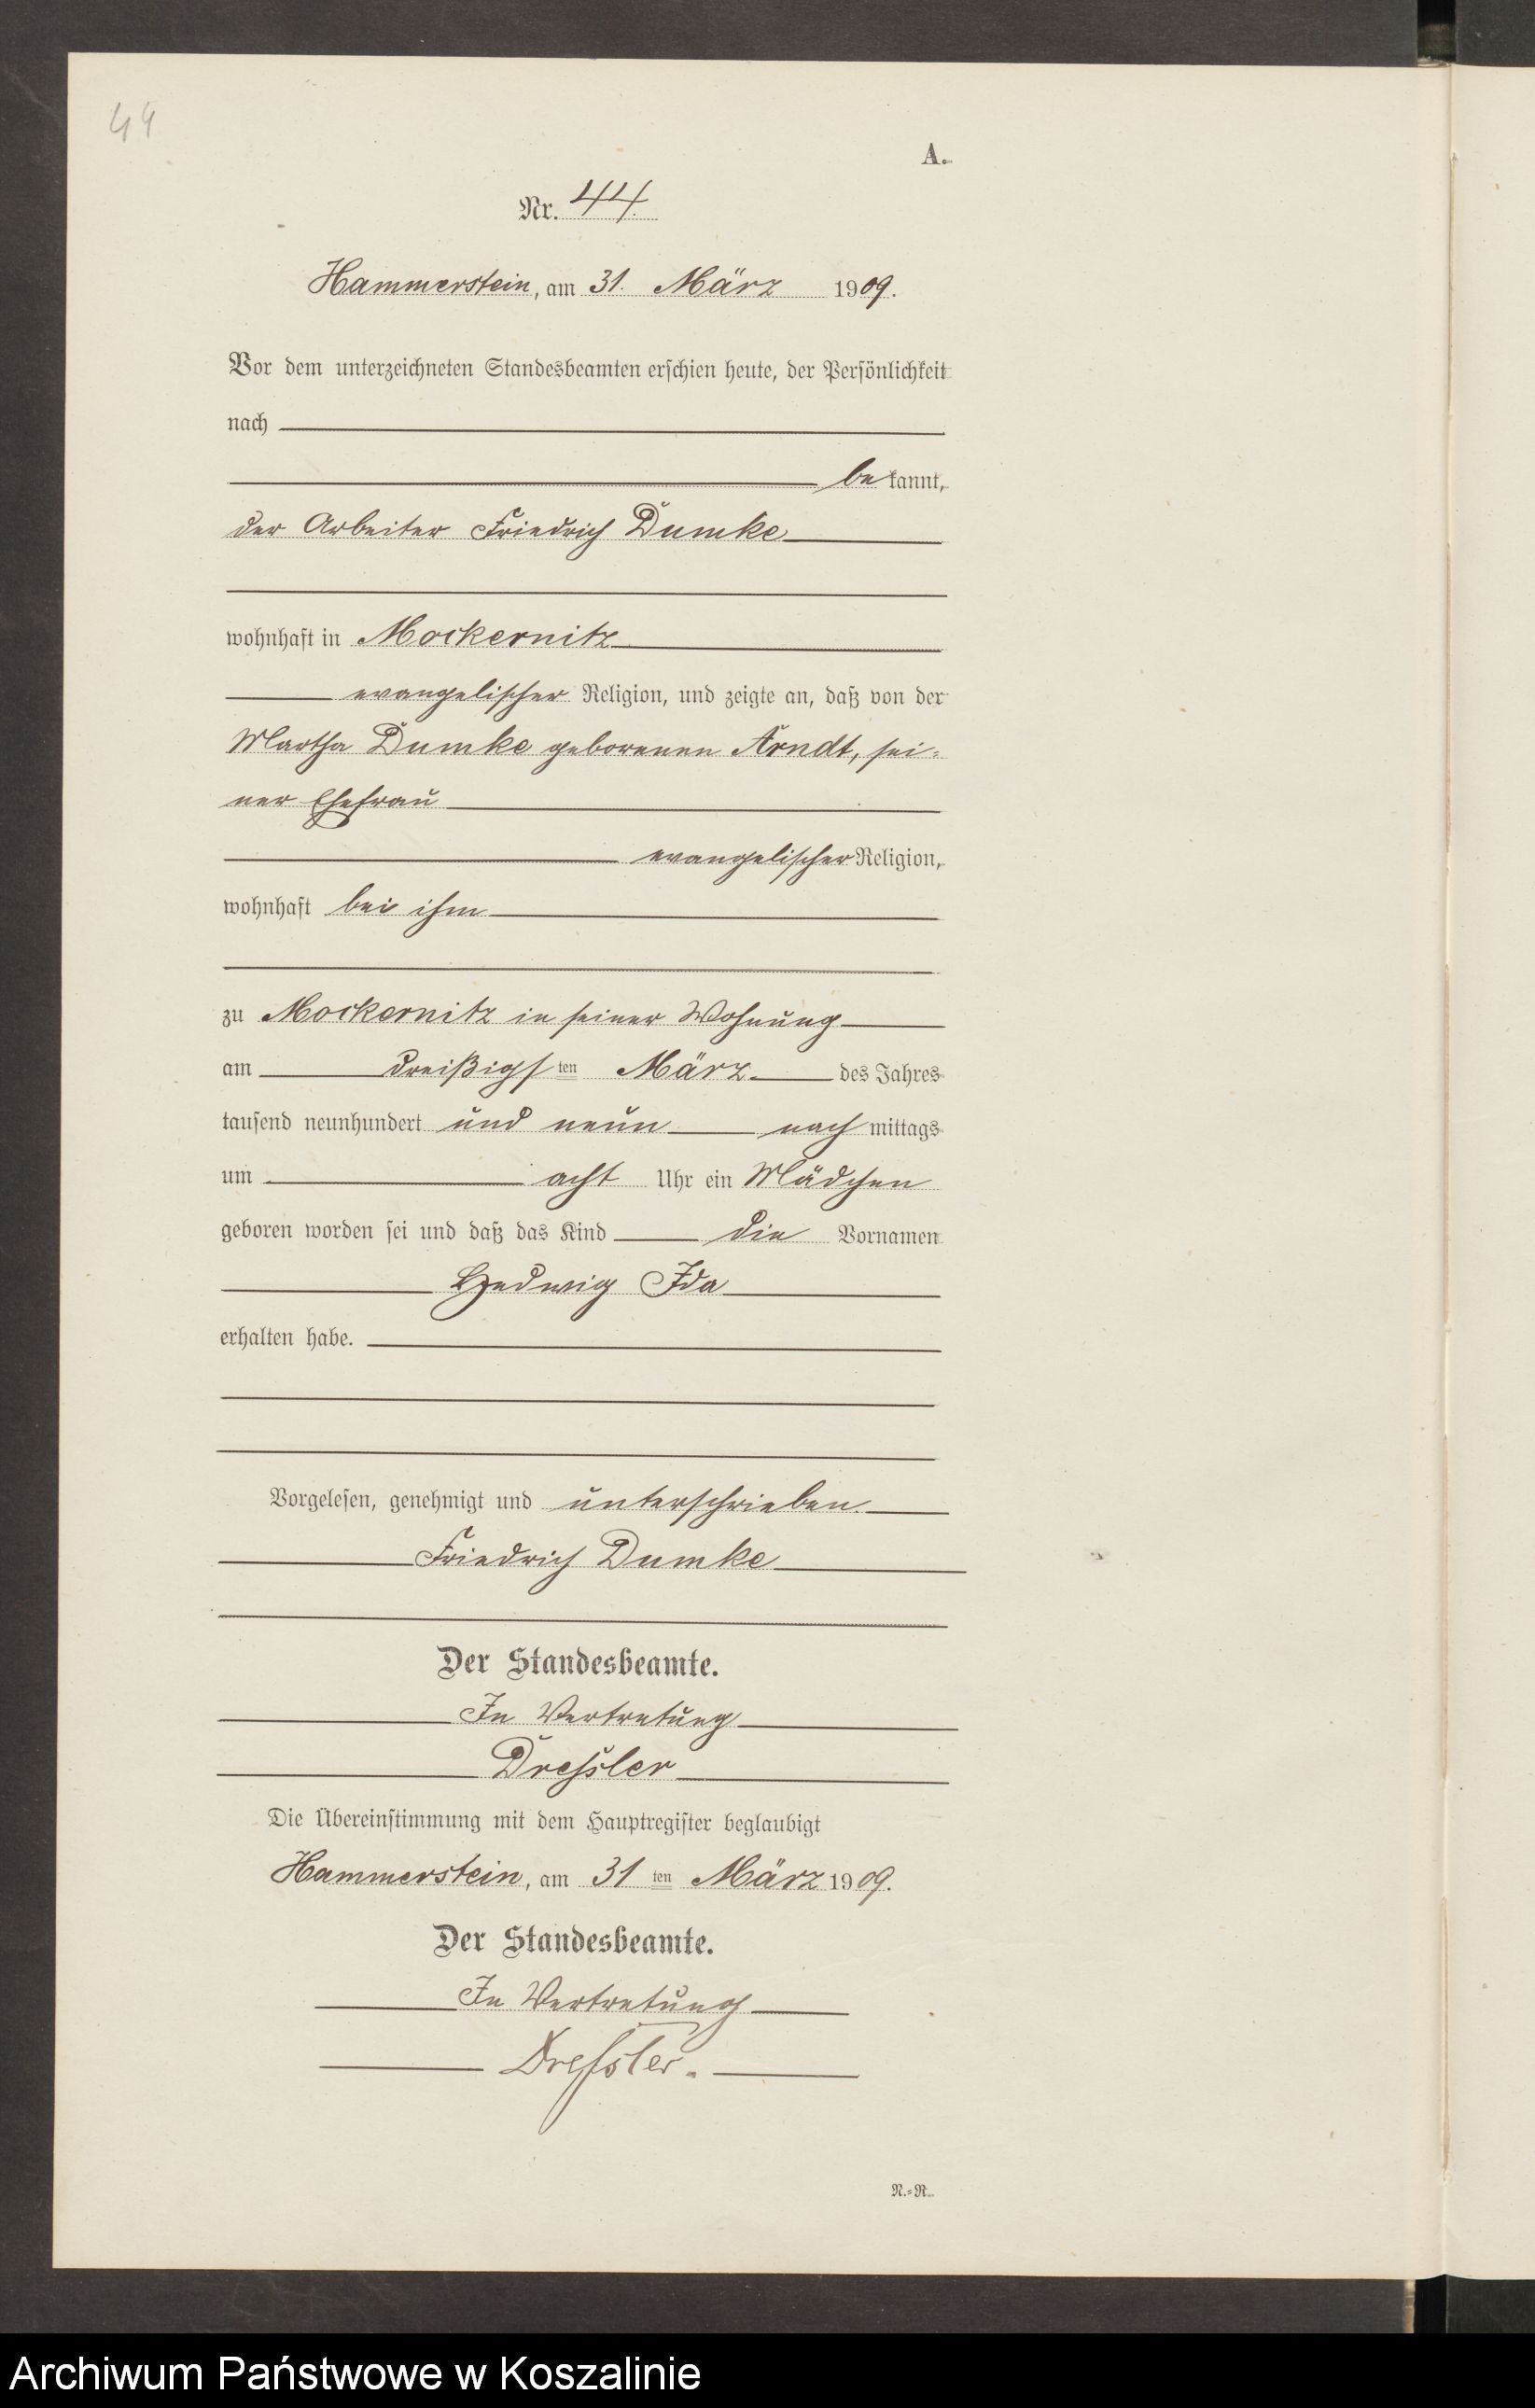 44
A.
Nr. 44.
Hammerstein, am 31. März 1909.
Vor dem unterzeichneten Standesbeamten erschien heute, der Persönlichkeit
nach
bekannt,
der Arbeiter Friedrich Dumke
wohnhaft in Mockernitz
evangelischer Religion, und zeigte an, daß von der
Martha Dumke geborenen Arndt, sei=
ner Ehefrau
evangelischer Religion,
wohnhaft bei ihm
zu Mockernitz in seiner Wohnung
am dreißigsten März des Jahres
tausend neunhundert und neun nachmittags
um acht Uhr ein Mädchen
geboren worden sei und daß das Kind die Vornamen
Hedwig Ida
erhalten habe.
Vorgelesen, genehmigt und unterschrieben.
Friedrich Dumke
Der Standesbeamte.
In Vertretung
Dressler
Die Übereinstimmung mit dem Hauptregister beglaubigt
Hammerstein, am 31ten März 1909.
Der Standesbeamte.
In Vertretung
Dressler.
N.=R.
Archiwum Państwowe w Koszalinie